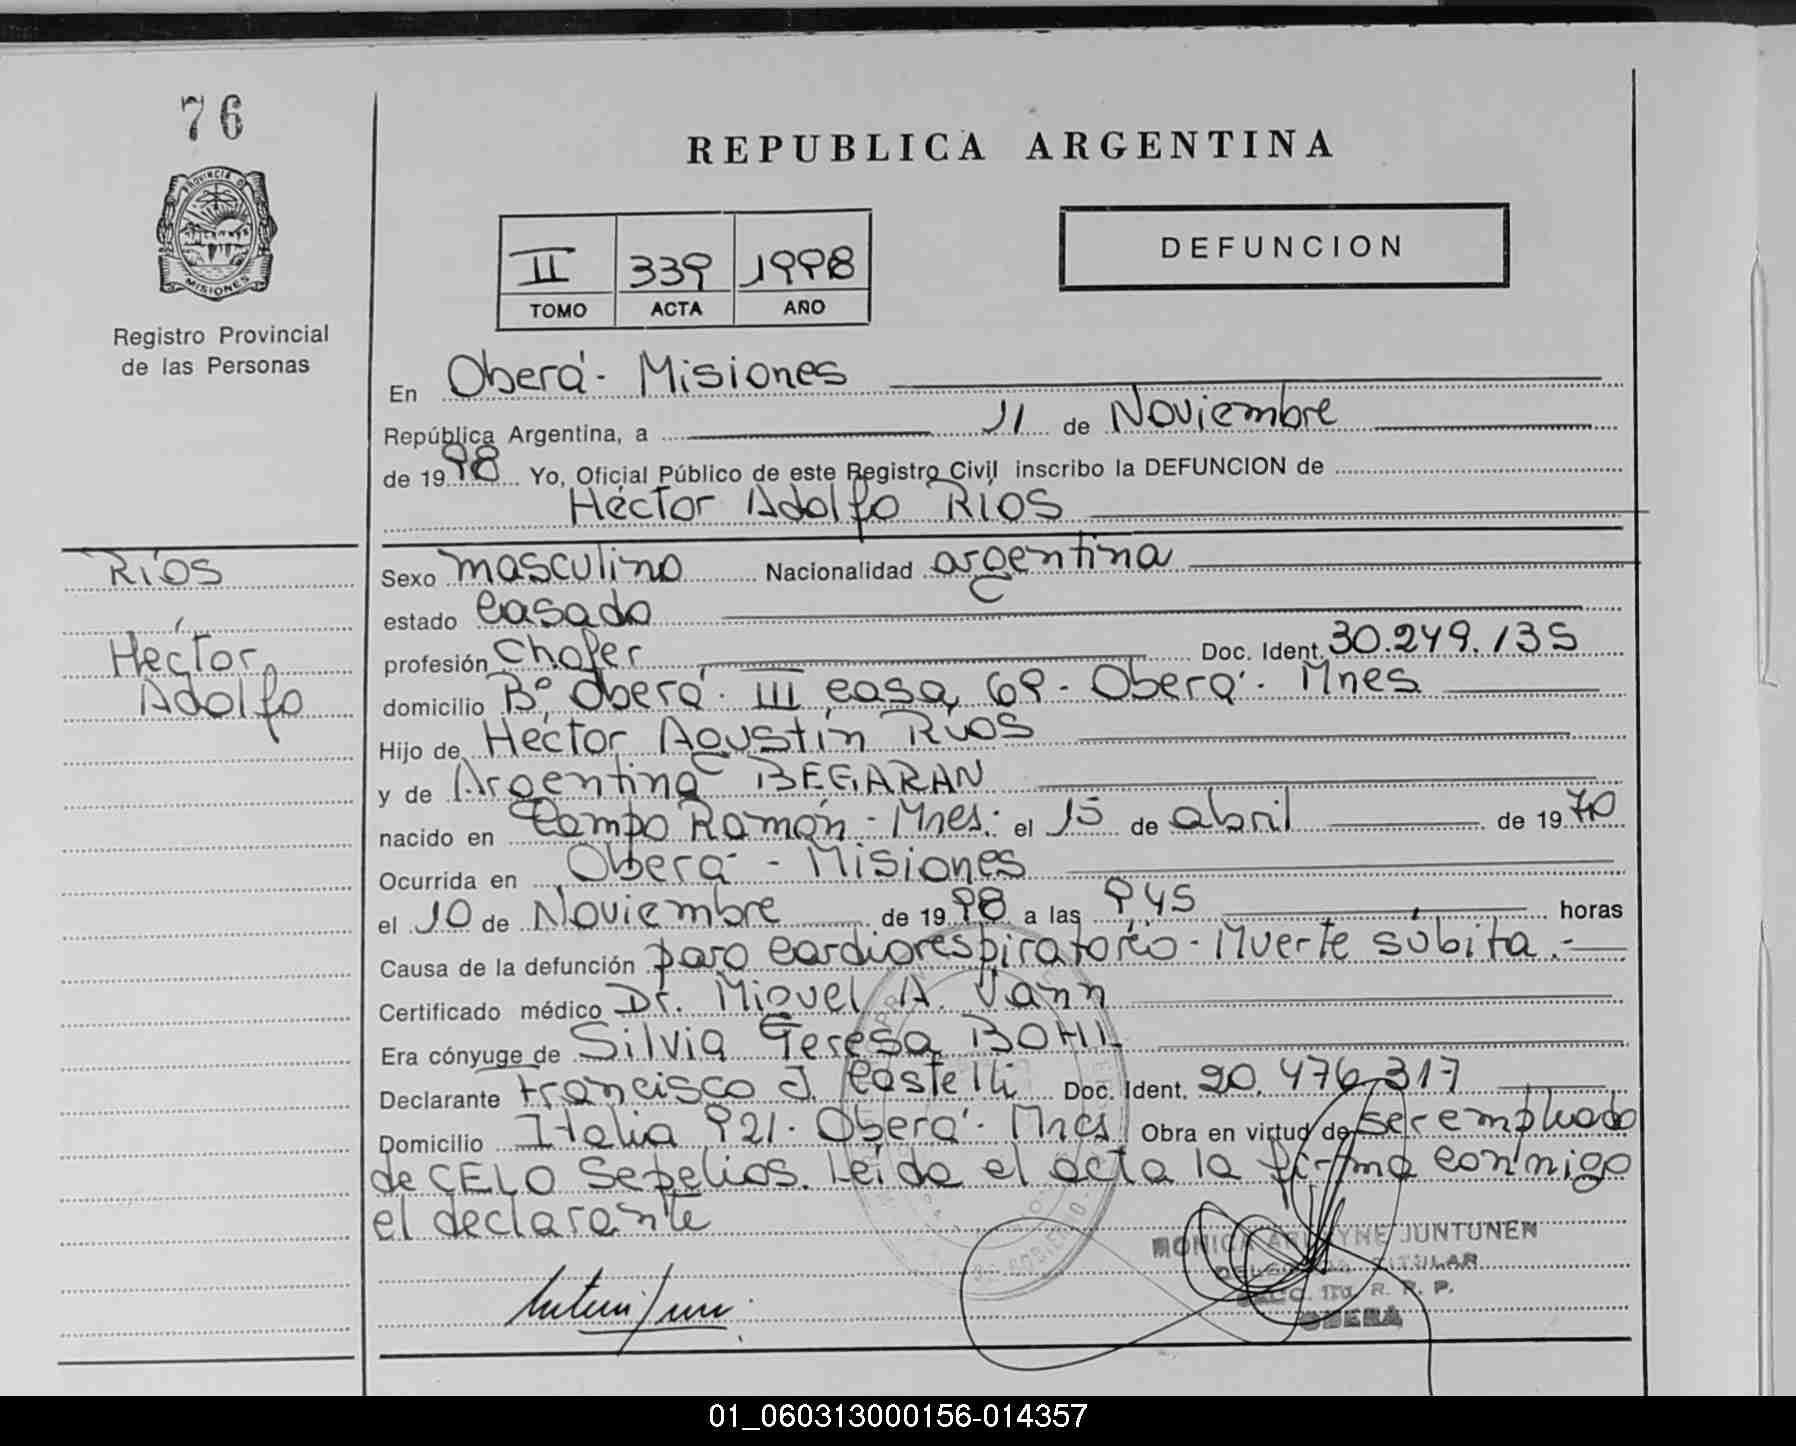 76
PROVINCIA DE
MISIONES
Registro Provincial
de las Personas
REPUBLICA ARGENTINA
II 339 1998
TOMO ACTA AÑO
DEFUNCION
En Oberá - Misiones
República Argentina, a 11 de Noviembre
de 1998 Yo, Oficial Público de este Registro Civil inscribo la DEFUNCION de
Héctor Adolfo RIOS
Ríos
Héctor
Adolfo
Sexo masculino Nacionalidad argentina
estado casado
profesión Chofer Doc. Ident. 30.249.135
domicilio Bº Oberá III casa 69 - Oberá - Mnes
Hijo de Héctor Agustín Ríos
y de Argentina BEGARAN
nacido en Campo Ramón - Mnes. el 15 de abril de 1970
Ocurrida en Oberá - Misiones
el 10 de Noviembre de 1998 a las 9,45 horas
Causa de la defunción paro cardiorespiratorio - Muerte súbita.-
Certificado médico Dr. Miguel A. Vann
Era cónyuge de Silvia Teresa BOHL
Declarante Francisco J. Castelli Doc. Ident. 20.476.317
Domicilio Italia 921 - Oberá - Mnes Obra en virtud de ser empleado
de CELO Sepelios. Leída el acta la firma conmigo
el declarante
MONICA JUNTUNEN
TITULAR
R. P. P.
OBERA
01_060313000156-014357